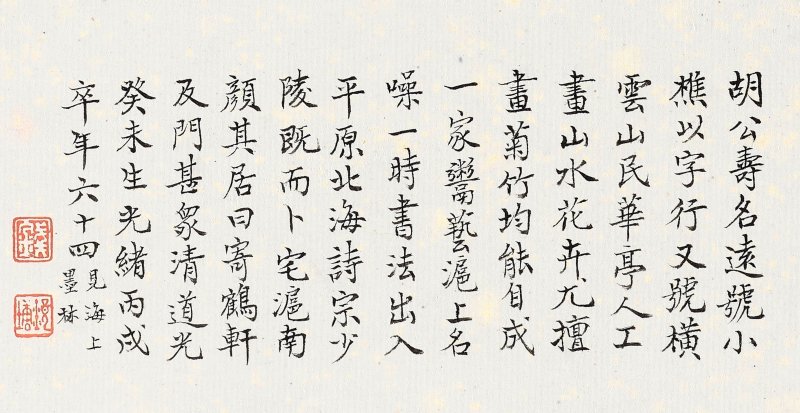 胡公壽名遠號小
樵以字行又號橫
雲山民華亭人工
畫山水花卉尤擅
畫菊竹均能自成
一家鬻藝滬上名
噪一時書法出入
平原北海詩宗少
陵既而卜宅滬南
顏其居曰寄鶴軒
及門甚眾清道光
癸未生光緒丙戌
卒年六十四見海上
墨林